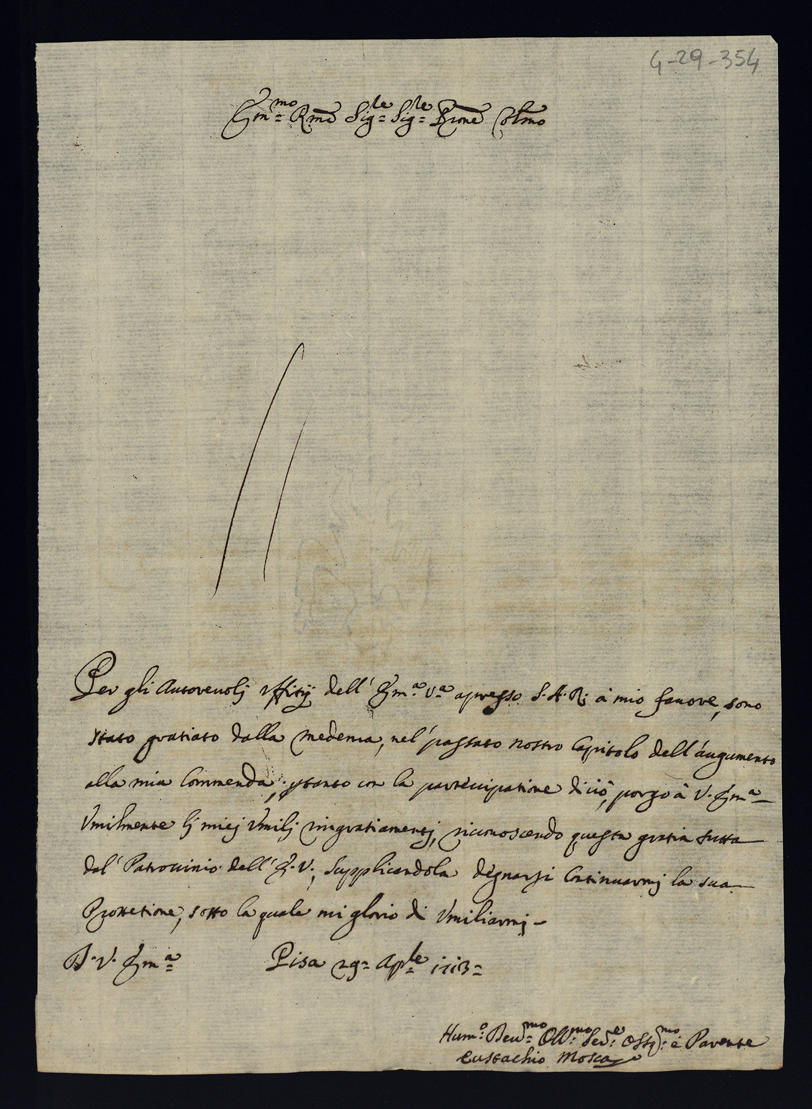 4-29-354
Em:mo Rmo Sig:le Sig:le Prone Colmo
Per gli Autorevolj Uffitij dell' Em:a V:a apresso S.A.R: à mio favore, sono
stato gratiato dalla medema, nel' passato nostro Capitolo dell'augumento
alla mia Commenda; p̱tanto con la partecipatione di ciò, porgo à V. Em:a
Vmilmente lj miej Vmilj ringratiamentj, riconoscendo questa gratia tutta
dal' Patrocinio dell' E.V., Supplicandola degnarsi Continuarmj la sua
Protetione, sotto la quale mi glorio di Vmiliarmj
D. V. Em:a Pisa 29= Ap:le 1713=
Hum:o Deu:mo Obl:mo Ser:e Oss:mo e Parente
Eustachio Mosca